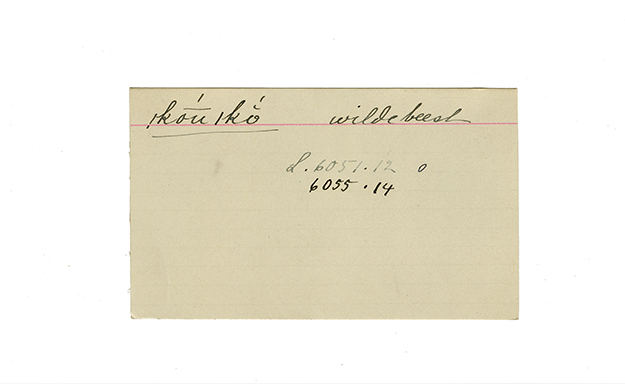 ǀkṓŭ ǀkŏ́ wildebeest
L. 6051.12 o
6055.14